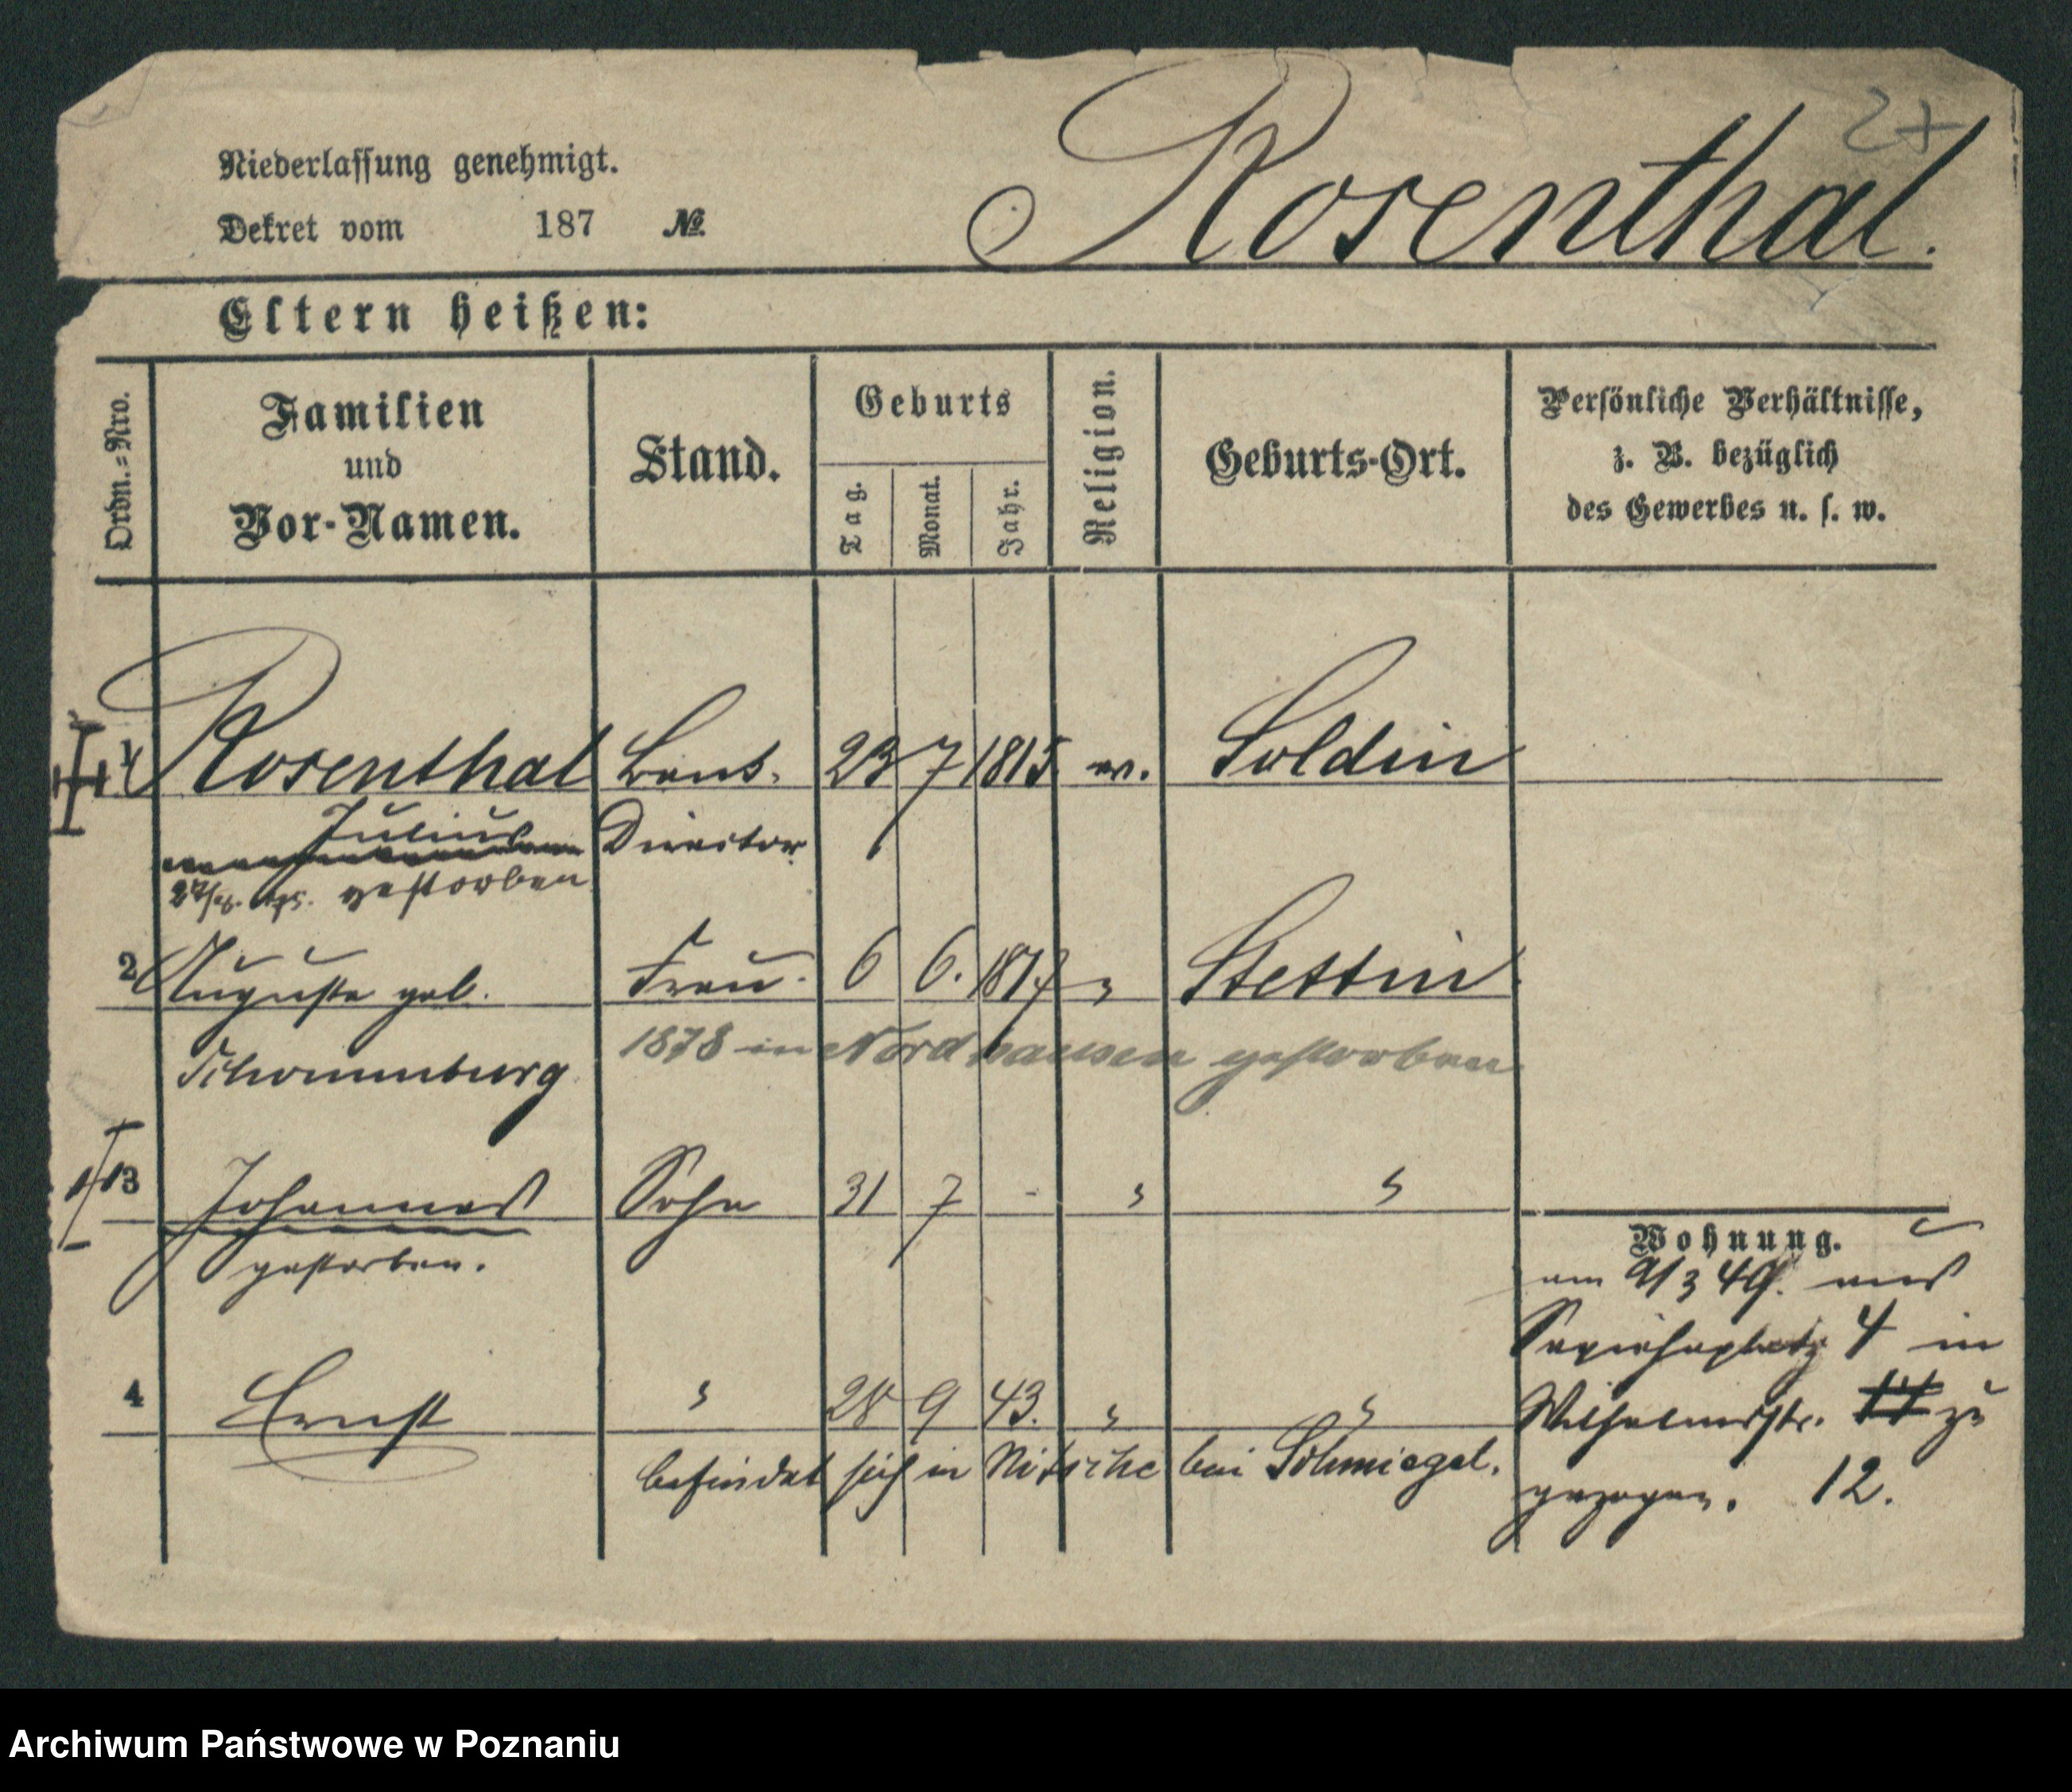 27
Rosenthal.
Niederlassung genehmigt.
Dekret vom 187 №
Eltern heißen:
Ordn.=Nro.
Familien
und
Vor-Namen.
Stand.
Geburts
Tag.
Monat.
Jahr.
Religion.
Geburts-Ort.
Persönliche Verhältnisse,
z. B. bezüglich
des Gewerbes u. s. w.
1 Rosenthal 23 7 1815. ev. Soldin
Julius Director
gestorben
2 Auguste geb. Frau 6 6. 181 " Stettin
Schommburg 1878 in Nordhausen gestorben
3 Johannes Sohn 31 7 - " "
gestorben.
4 Ernst " 28 9 43. " "
befindet sich in Nitsche bei Schmiegel.
Wohnung.
am aus
Sapiehaplatz 4 in
Wilhelmsstr. zu
gezogen. 12.
Archiwum Państwowe w Poznaniu